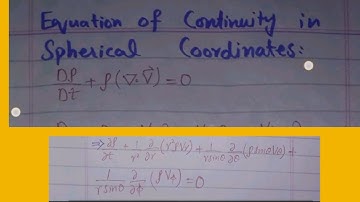 Equation of Continuity in
Spherical Coordinates:
Dρ/Dt + ρ(∇.V⃗) = 0
⇒ ∂ρ/∂t + 1/r² ∂/∂r (r²ρVr) + 1/(r sinθ) ∂/∂θ (ρ sinθ Vθ) +
1/(r sinθ) ∂/∂φ (ρVφ) = 0